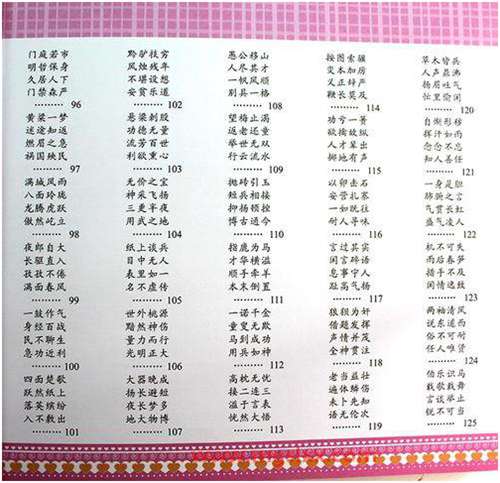 门庭若市
明哲保身
久居人下
门禁森严
········· 96
黄粱一梦
迷途知返
燃眉之急
祸国殃民
········· 97
满城风雨
八面玲珑
龙腾虎跃
傲然屹立
········· 98
夜郎自大
长驱直入
孜孜不倦
满面春风
········· 99
一鼓作气
身经百战
民不聊生
急功近利
········· 100
四面楚歌
跃然纸上
落英缤纷
入不敷出
········· 101
黔驴技穷
风烛残年
不堪设想
安贫乐道
········· 102
悬梁刺股
功德无量
流芳百世
利欲熏心
········· 103
无价之宝
神采飞扬
三更半夜
用武之地
········· 104
纸上谈兵
目中无人
表里如一
名不虚传
········· 105
世外桃源
黯然神伤
量力而行
光明正大
········· 106
大器晚成
扬长避短
夜长梦多
地大物博
········· 107
愚公移山
人尽其才
一帆风顺
别具一格
········· 108
望梅止渴
返老还童
举世无双
行云流水
········· 109
抛砖引玉
短兵相接
抑扬顿挫
博古通今
········· 110
指鹿为马
才华横溢
顺手牵羊
本末倒置
········· 111
一诺千金
童叟无欺
马到成功
用兵如神
········· 112
高枕无忧
接二连三
溢于言表
恍然大悟
········· 113
按图索骥
实本加厉
义正辞严
鞭长莫及
········· 114
功亏一篑
欲擒故纵
人才辈出
掷地有声
········· 115
以卵击石
安营扎寨
一如既往
耐人寻味
········· 116
言过其实
闲言碎语
息事宁人
趾高气扬
········· 117
狼狈为奸
借题发挥
声情并茂
全神贯注
········· 118
老当益壮
遍体鳞伤
未卜先知
语无伦次
········· 119
草木皆兵
人声鼎沸
扬眉吐气
忙里偷闲
········· 120
自惭形秽
挥汗如雨
念念不忘
知人善任
········· 121
一身是胆
肺腑之言
气贯长虹
盛气凌人
········· 122
机不可失
雨后春笋
措手不及
闲情逸致
········· 123
两袖清风
说东道西
俗不可耐
任人唯贤
········· 124
伯乐识马
载歌载舞
言谈举止
锐不可当
········· 125